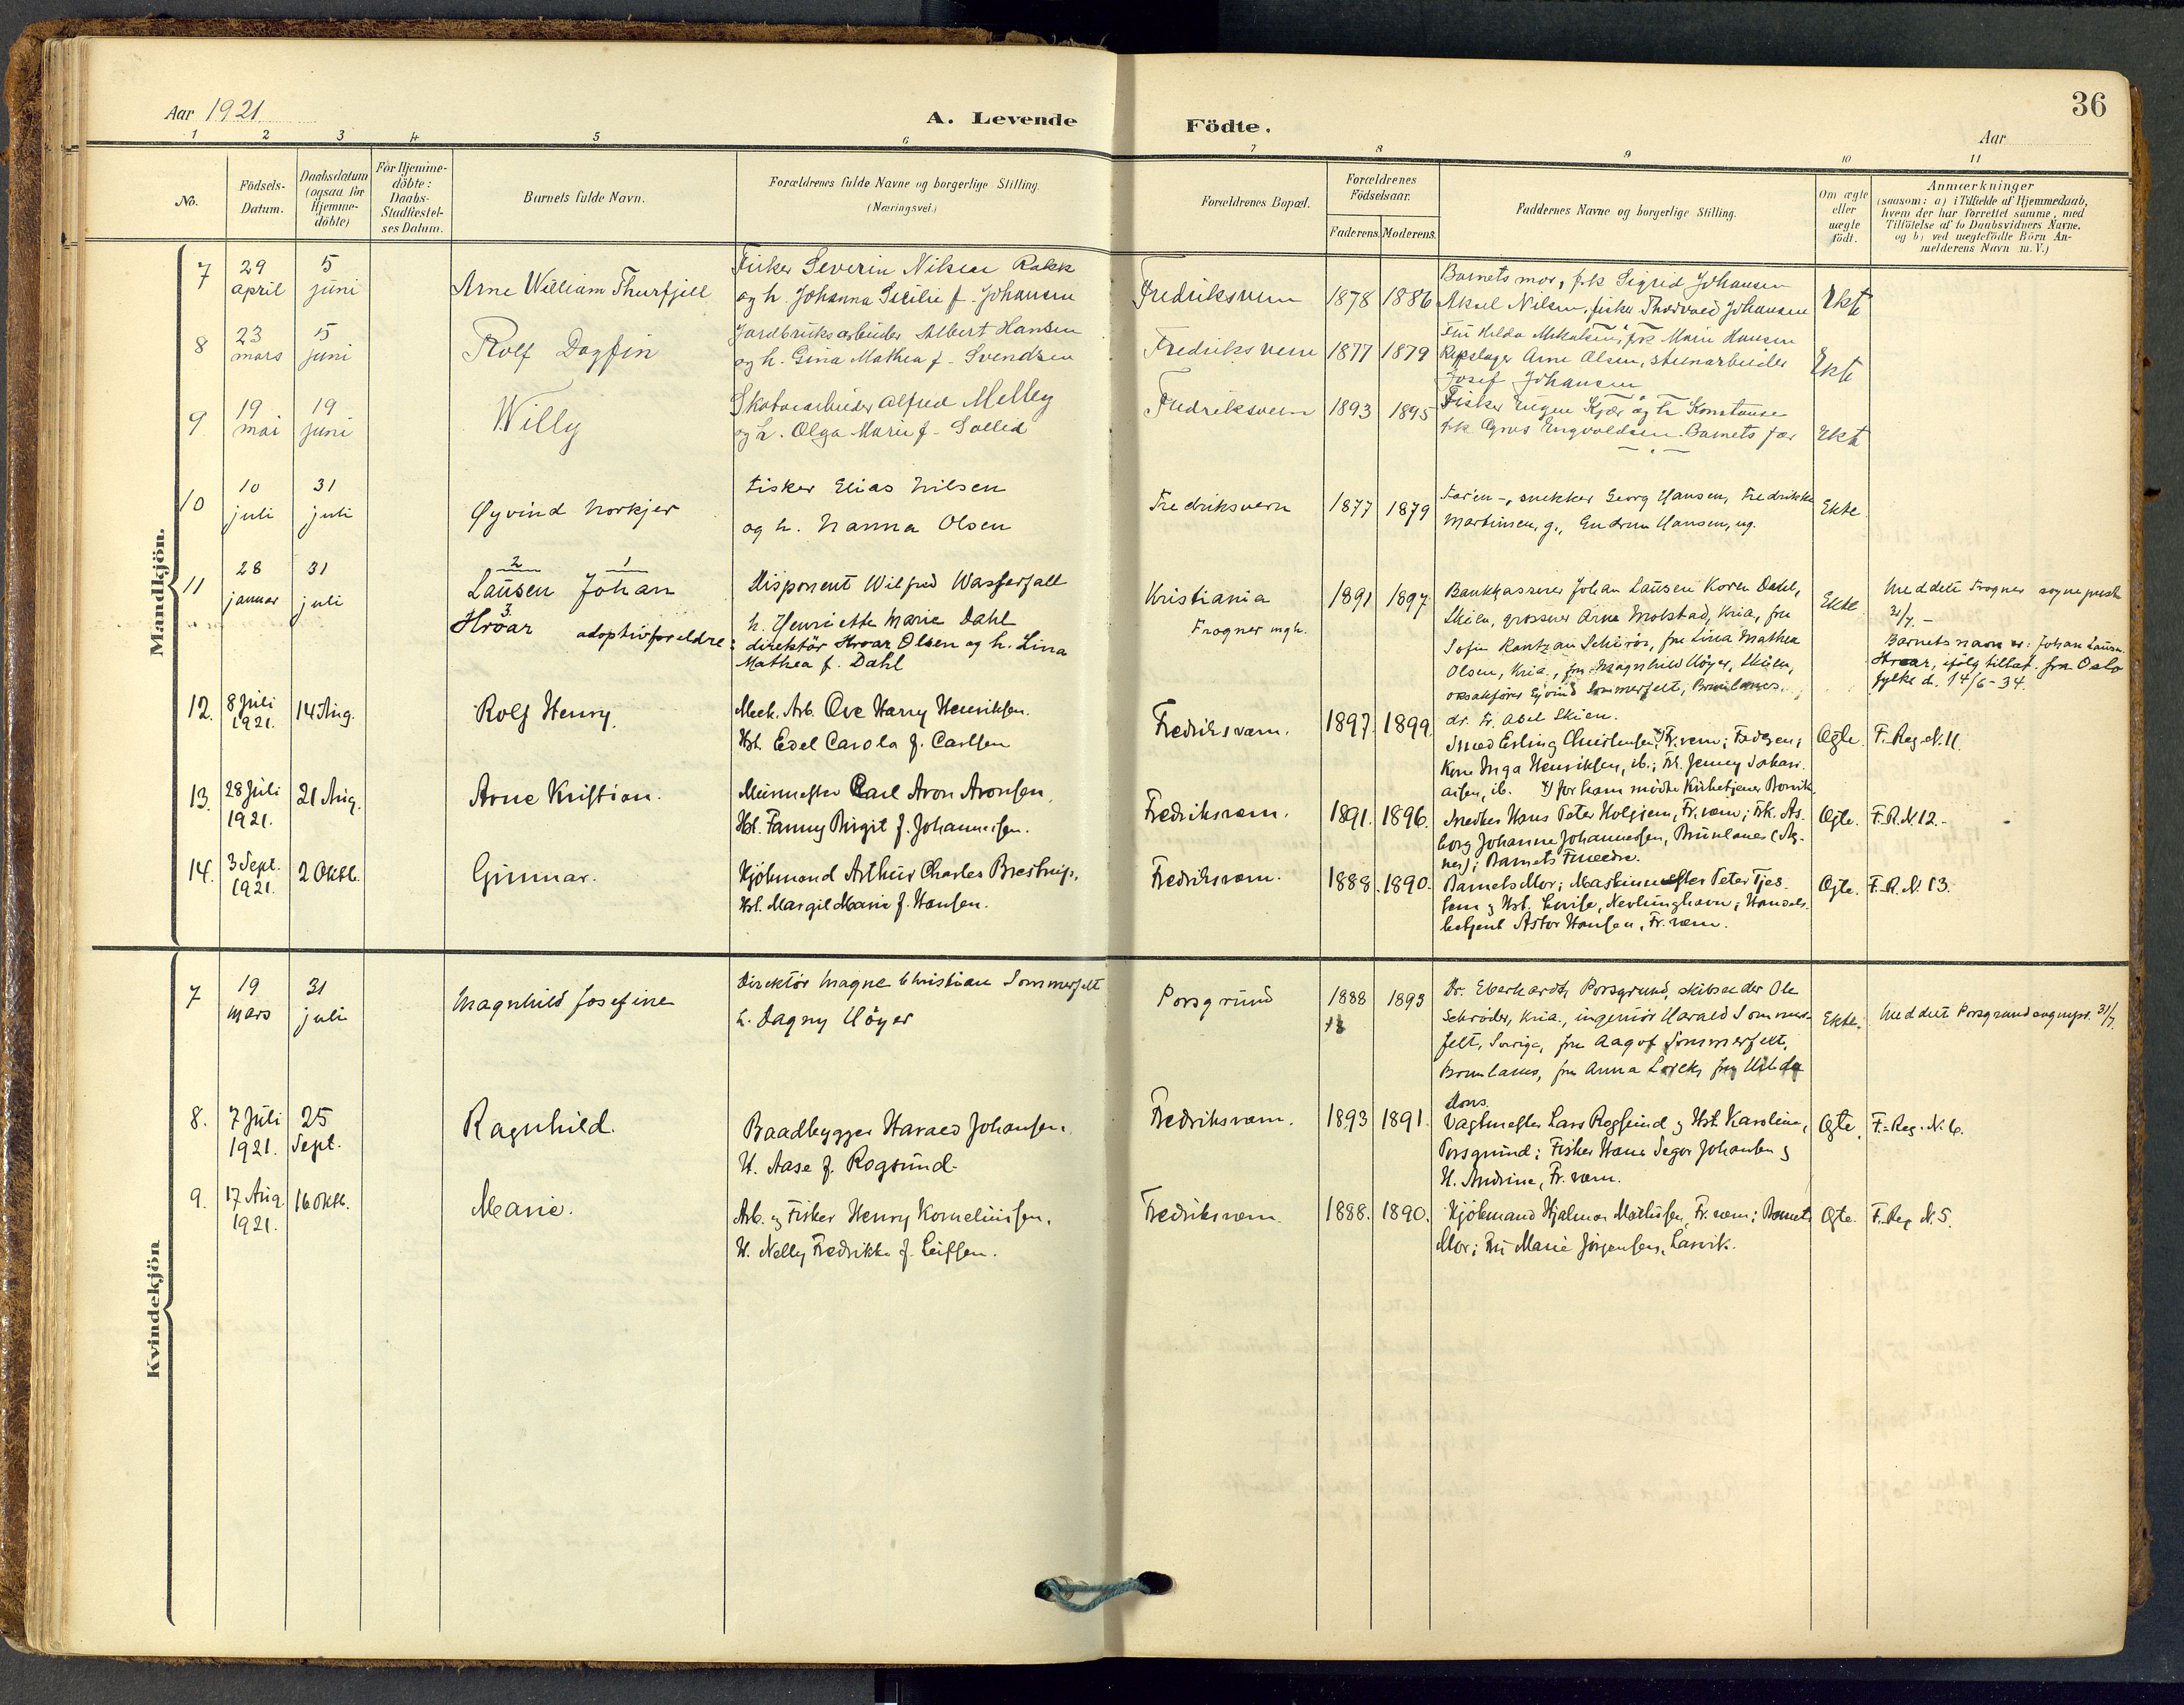 36
Aar 1921
A. Levende Födte.
Aar
1 2 3 4 5 6 7 8 9 10 11
No.
Födsels-
Datum.
Daabsdatum
(ogsaa for
Hjemme-
döbte)
For Hjemme-
döbte:
Daabs-
Stadfæstel-
ses Datum.
Barnets fulde Navn.
Forældrenes fulde Navne og borgerlige Stilling.
(Næringsvei.)
Forældrenes Bopæl.
Forældrenes
Födselsaar.
Faderens. Moderens.
Faddernes Navne og borgerlige Stilling.
Om ægte
eller
uægte
födt.
Anmærkninger
(saasom: a) i Tilfælde af Hjemmedaab,
hvem der har forrettet samme, med
Tilföielse af to Daabsvidners Navne.
og b) ved uægtefödte Börn An-
melderens Navn m. V.)
Mandkjön.
7
29
april
5
juni
Arne William Thurfjell
Fisker Severin Nilsen Rakk
og h. Johanna Secilie f. Johansen
Fredriksvern
1878 1886
Barnets mor, frk Sigrid Johansen
Aksel Nilsen, fisker Thorvald Johansen
Ekte
8
23
mars
5
juni
Rolf Dagfin
Jordbruksarbeider Albert Hansen
og h. Gina Mathea f. Svendsen
Fredriksvern
1877 1879
Fru Hilda Mikalsen, frk Marie Hansen
Repslager Arne Olsen, stenarbeider
Josef Johansen
Ekte
9
19
mai
19
juni
Willy
Skotoiarbeider Alfred Melley
og h. Olga Marie f. Solled
Fredriksvern
1893 1895
Fisker Eugen Kjær og h Konstanse
frk Agnes Engvoldsen. Barnets far
Ekte
10
10
juli
31
juli
Øyvind Norkjer
Fisker Elias Nilsen
og h. Nanna Olsen
Fredriksvern
1877 1879
Faren, snekker Georg Hansen, Fredrikke
Martinsen, g., Gudrun Hansen, ug.
Ekte
11
28
januar
31
juli
2 1
Lausen Johan
3.
Hroar adoptivforeldre:
Disponent Wilfred Wasserfall
h. Henriette Marie Dahl
direktör Hroar Olsen og h. Lina
Mathea f. Dahl
Kristiania
Frogner mgh.
1891 1897
Bankkasserer Johan Lausen Koren Dahl,
Skien, grosserer Arne Molstad, Kria, fru
Sofie Rantzau Schöröi, fru Lina Mathea
Olsen, Kria., fru Magnhild Höyer, Skien,
oksakförer Eyvind Sommerfelt, Brunlanes,
dr. Fr. Abel Skien.
Ekte
Meddelt Frogner sogneprest
31/7. –
Barnets navn er: Johan Lausen
Hroar, ifölg tillat. fra Oslo
fylke d. 14/6-34.
12.
8 Juli
1921.
14 Aug.
Rolf Henry.
Mek. Arb. Ove Harry Henriksen.
Hst. Edel Carola f. Carlsen
Fredriksværn.
1897 1899
Smed Erling Christensen x) Fr.værn; Fadren;
Kone Inga Henriksen, ib.; Frk. Jenny Johan-
aisen, ib. x) for ham mödte Kirketjener Bonvik
Ægte. F.-Reg. N. 11.
13.
28 Juli
1921.
21 Aug.
Arne Kristian.
Murmester Carl Aron Aronsen,
Hst. Fanny Birgit f. Johannesen.
Fredriksværn.
1891. 1896.
Snedker Hans Peter Holgjem, Fr.værn; Frk. As-
borg Johanne Johannessen, Brunlanes (Ag-
nes); Barnets Foreldre.
Ægte. F.R.N 12.
14.
3 Sept.
1921.
2 Oktb.
Gunnar.
Kjöbmand Arthur Charles Brestrup,
Hst. Margit Marie f. Hansen.
Fredriksværn.
1888. 1890.
Barnets Mor; Maskinmester Peter Tjes-
sem og Hst. Lovise, Nevlunghavn; Handels-
betjent Astor Hansen, Fr. værn.
Ægte. F.R.N. 13.
Kvindekjön
7
19
mars
31
juli
Magnhild Josefine
Direktör Magne Christian Sommerfelt
h. Dagny Höyer
Porsgrund
1888 1893
Dr. Eberhardt, Porsgrund, skibsreder Ole
Schröder, Kria., ingeniör Harald Sommer-
felt, Sverige, fru Aagot Sommerfelt,
Brunlanes, fru Anna Lorck, fru Hilda
Dons.
Ekte.
Meddelt Porsgrund sogmpr. 31/7.
8.
7 Juli
1921.
25
Sept.
Ragnhild.
Baadbygger Harald Johansen.
H. Aase f. Rogsund.
Fredriksværn.
1893 1891.
Vagtmester Lars Rogsund og Hst. Karoline,
Porsgrund; Fisker Hans Seger Johansen og
H. Andrine, Fr. værn.
Ægte. F.-Reg. N. 6.
9.
17 Aug.
1921.
16 Oktb.
Marie.
Arb. og Fisker Henry Korneliussen,
H. Nelly Fredrikke f. Leifsen.
Fredriksværn.
1888. 1890.
Kjöbmand Hjalmar Mathisen, Fr. værn; Barnets
Mor; Fru Marie Jörgensen, Larvik.
Ægte. F.-Reg N. 5.